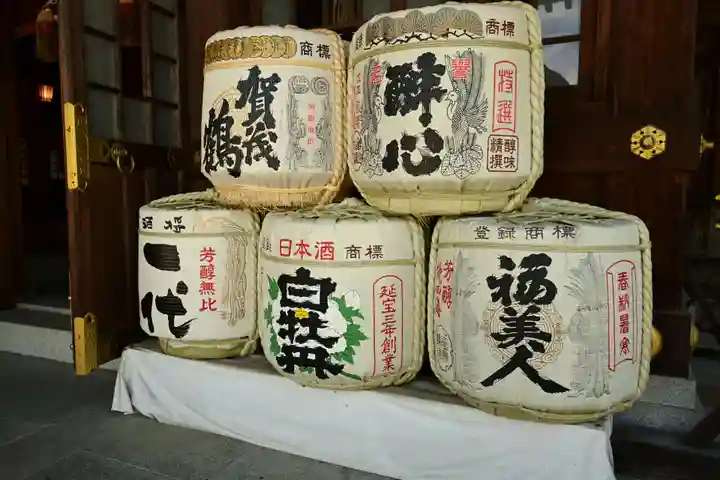 商標
賀茂鶴
商標
醉心
譽
特選
醇味
精撰
芳醇無比
一代
日本酒 商標
白牡丹
延宝三年創業
登録商標
芳醇
福美人